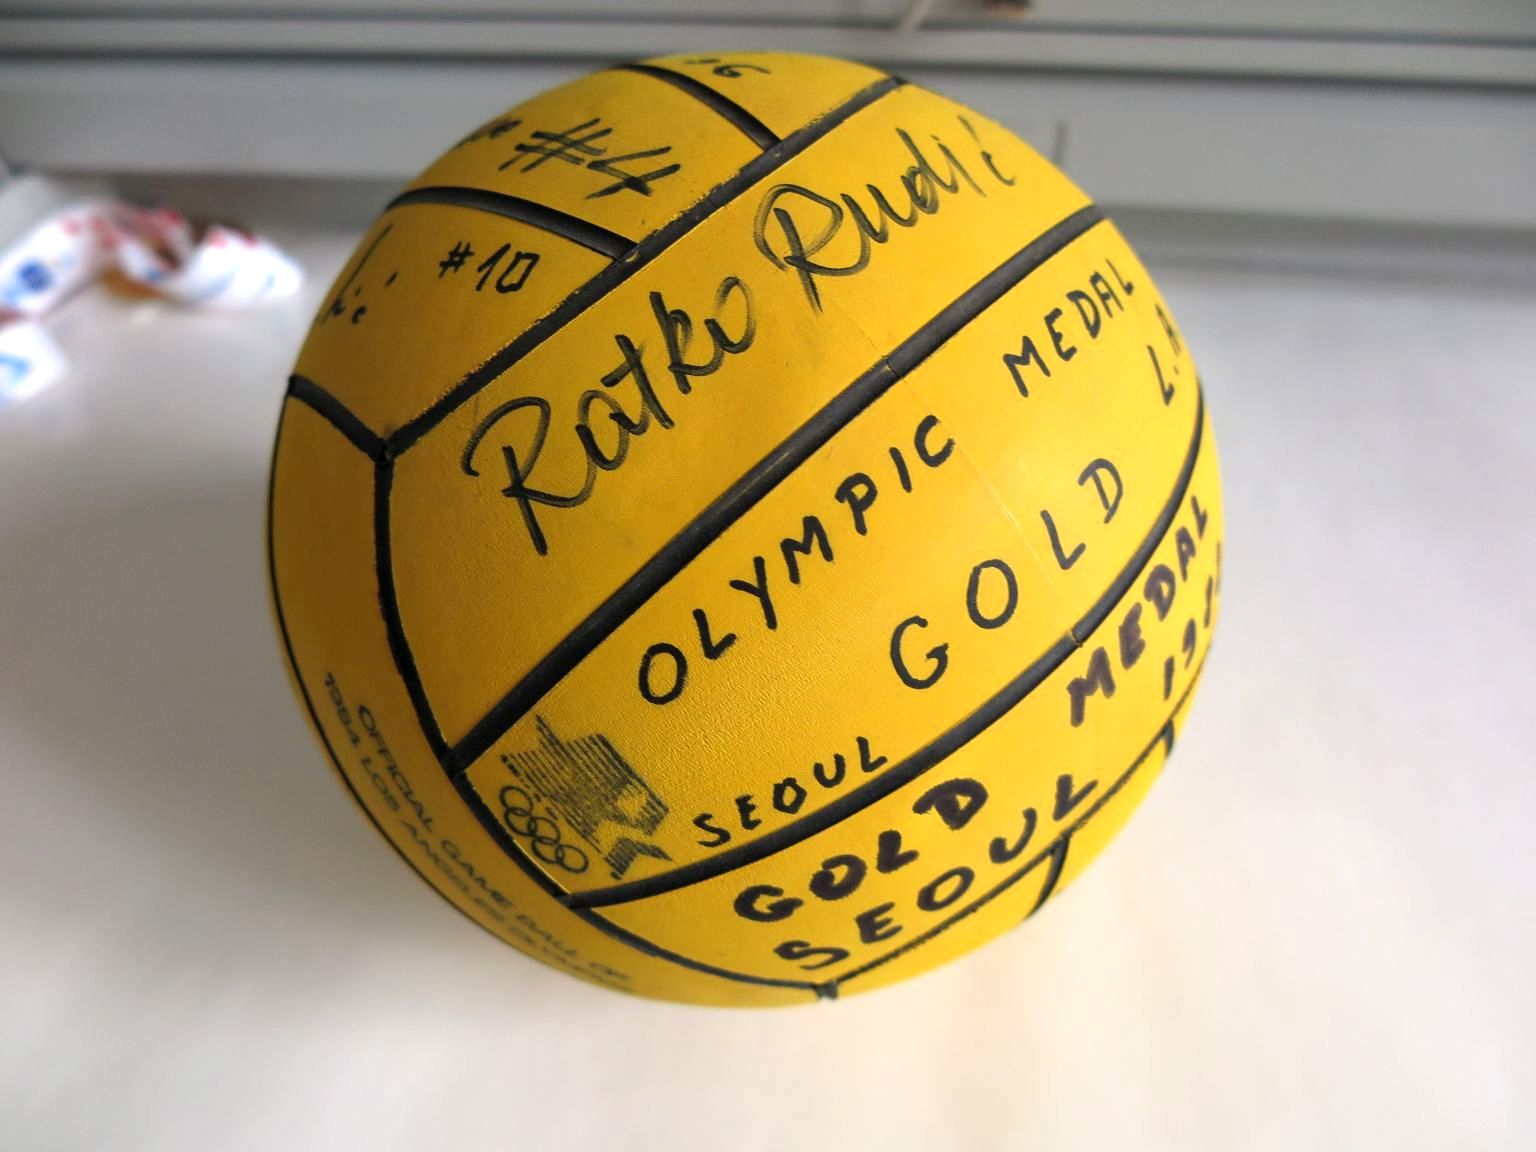 #4
#10
Ratko Rudić
OLYMPIC MEDAL
GOLD L.A
SEOUL
GOLD MEDAL
SEOUL
OFFICIAL GAME BALL OF
1984 LOS ANGELES OLYMPIC